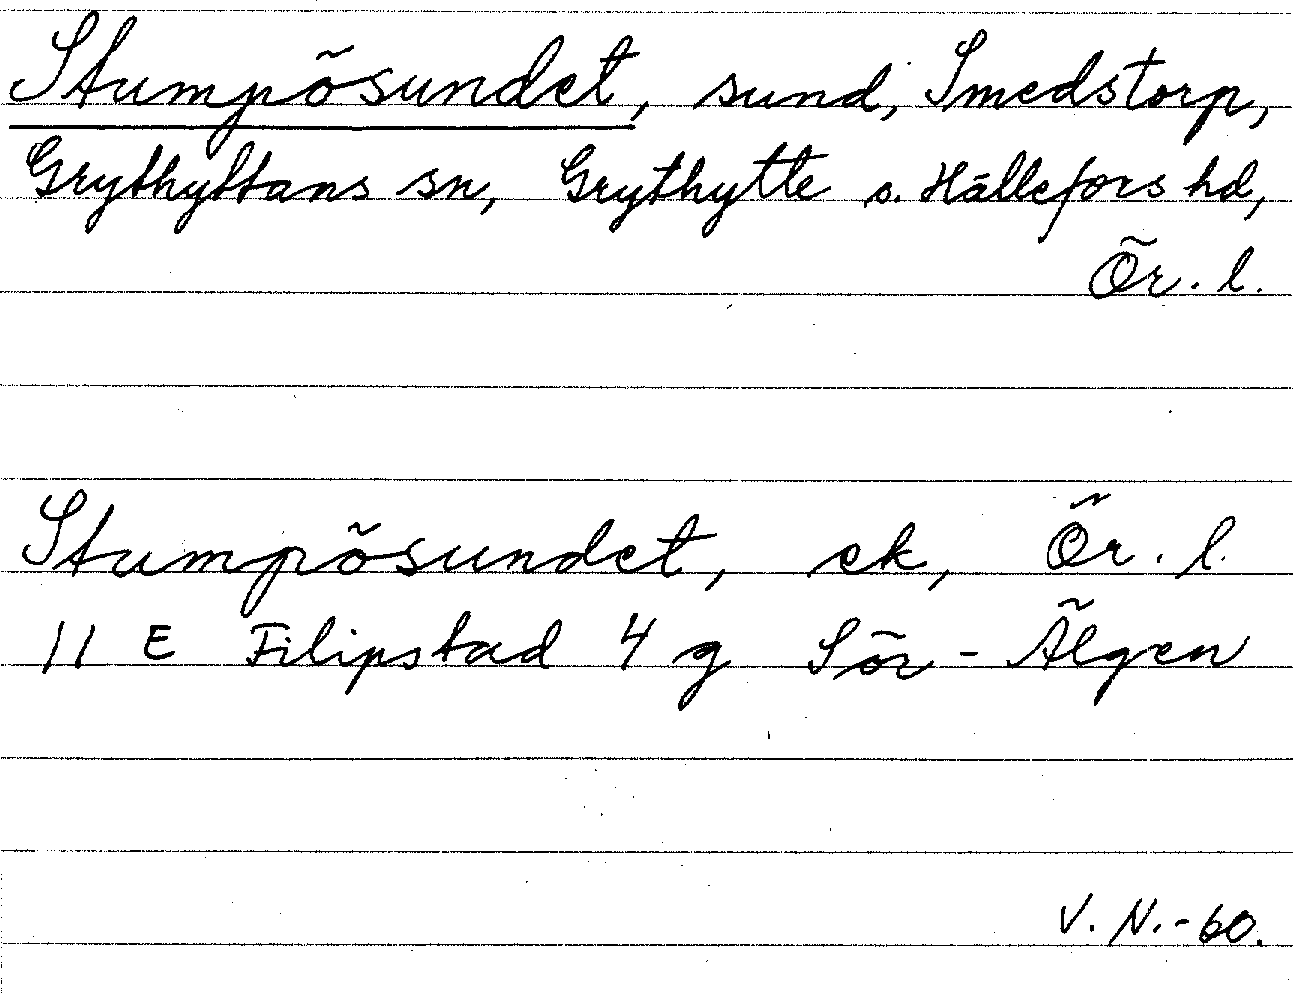 Stumpösundet, sund, Smedstorp,
Grythyttans sn, Grythytte o. Hällefors hd,
Ör. l.
Stumpösundet, ek, Ör. l.
11 E Filipstad 4 g Sör-Älgen
V. N.-60.